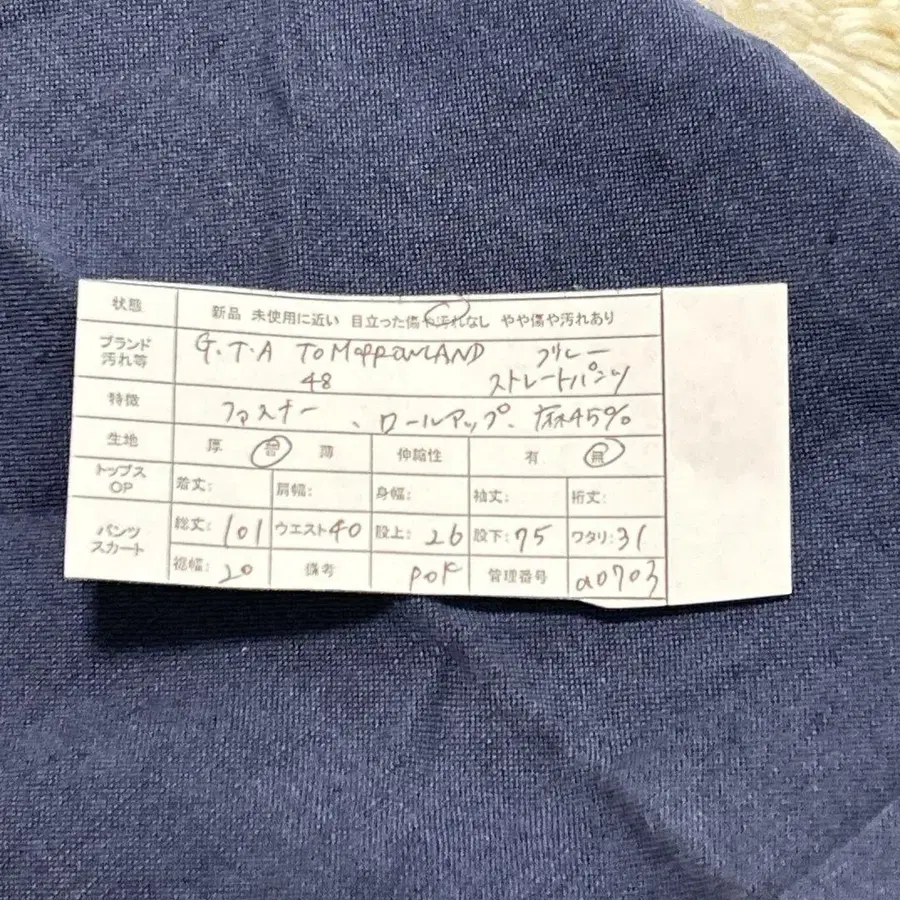 状態 新品 未使用に近い 目立った傷や汚れなし やや傷や汚れあり
ブランド 汚れ等 G.T.A TOMORROWLAND ブルー
48 ストレートパンツ
特徴 ファスナー、ロールアップ、麻45%
生地 厚 普 薄 伸縮性 有 無
トップス OP 着丈: 肩幅: 身幅: 袖丈: 裄丈:
パンツ スカート 総丈: 101 ウエスト40 股上: 26 股下: 75 ワタリ: 31
裾幅: 20 備考 管理番号 a0703